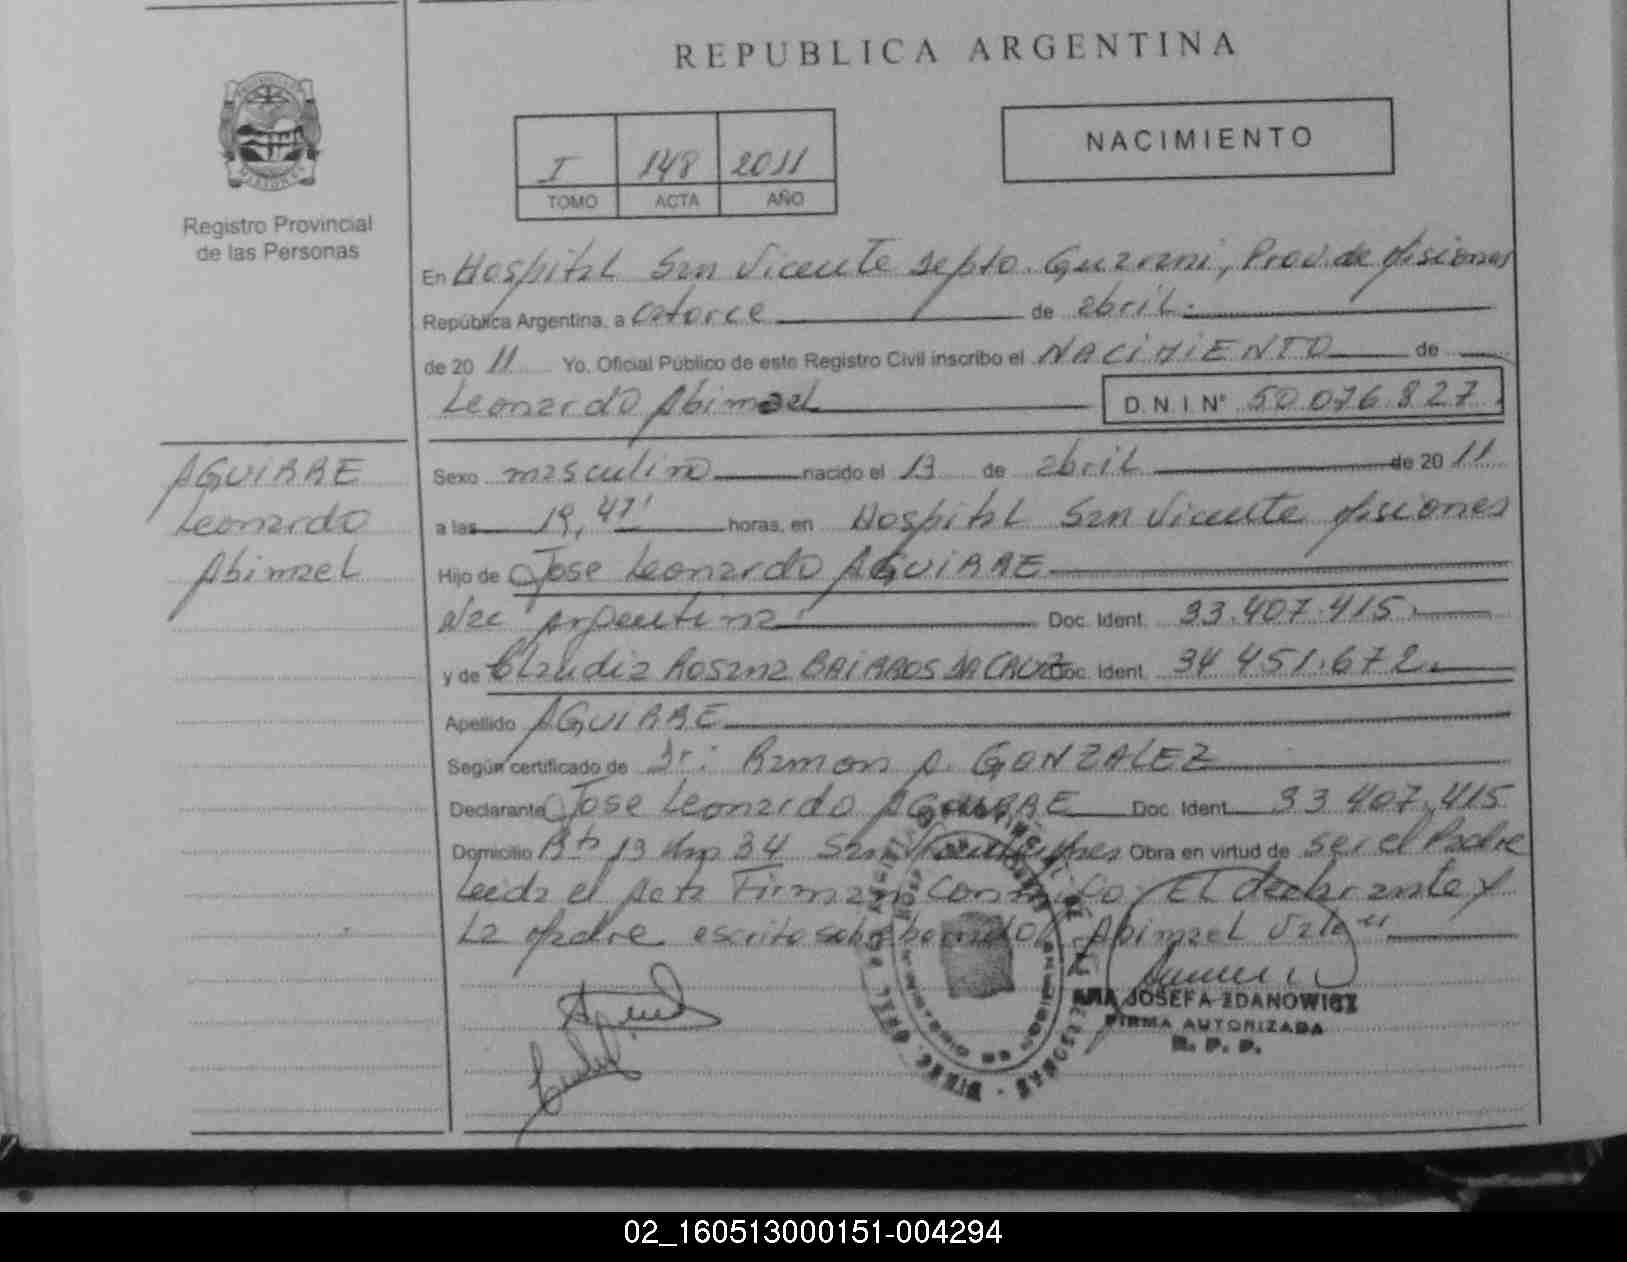 REPUBLICA ARGENTINA
NACIMIENTO
I 148 2011
TOMO ACTA AÑO
Registro Provincial
de las Personas
En Hospital San Vicente Depto. Guarani, Prov. de Misiones
República Argentina, a catorce de abril
de 2011 Yo, Oficial Público de este Registro Civil inscribo el NACIMIENTO de
Leonardo Abimael D.N.I. N° 50.076.827
AGUIRRE
Leonardo
Abimael
Sexo masculino nacido el 13 de abril de 2011
a las 19,47' horas, en Hospital San Vicente Misiones
Hijo de Jose Leonardo AGUIRRE
Nac Argentina Doc. Ident. 33.407.415
y de Claudia Rosana BAIRROS DA CRUZ Doc. Ident. 34.451.672
Apellido AGUIRRE
Según certificado de Dr: Ramon A. GONZALEZ
Declarante Jose Leonardo AGUIRRE Doc. Ident. 33.407.415
Domicilio 34 San Obra en virtud de ser el Padre
Leida el Acta Firman El declarante y
La Madre escrito sobre borrado Abimael Vale"
ANA JOSEFA ZDANOWICZ
FIRMA AUTORIZADA
R. P. P.
02_160513000151-004294